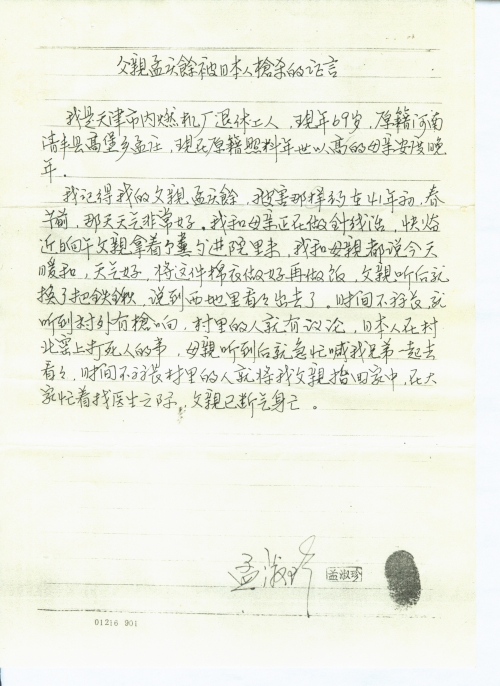 父親孟庆餘被日本人槍杀的证言
我是天津市内燃机厂退休工人，现年69岁，原籍河南
清丰县高堡乡孟庄，现在原籍照料年世以高的母亲安度晚
年。
我记得我的父亲孟庆餘，被害那样约在41年初，春
节前，那天天气非常好。我和母亲正在做针线活，快临
近晌午父亲拿着个粪勺进院里来，我和母亲都说今天
暖和，天气好，将这件棉衣做好再做饭，父亲听后就
换了把铁鍬，说到西地里看々出去了。时间不多长就
听到村外有槍响，村里的人就有议论，日本人在村
北窑上打死人的事，母親听到后就急忙喊我兄弟一起去
看々，时间不多长村里的人就将我父親抬回家中，在大
家忙着找医生之际，父親已断气身亡。
孟淑珍
孟淑珍
01216 901